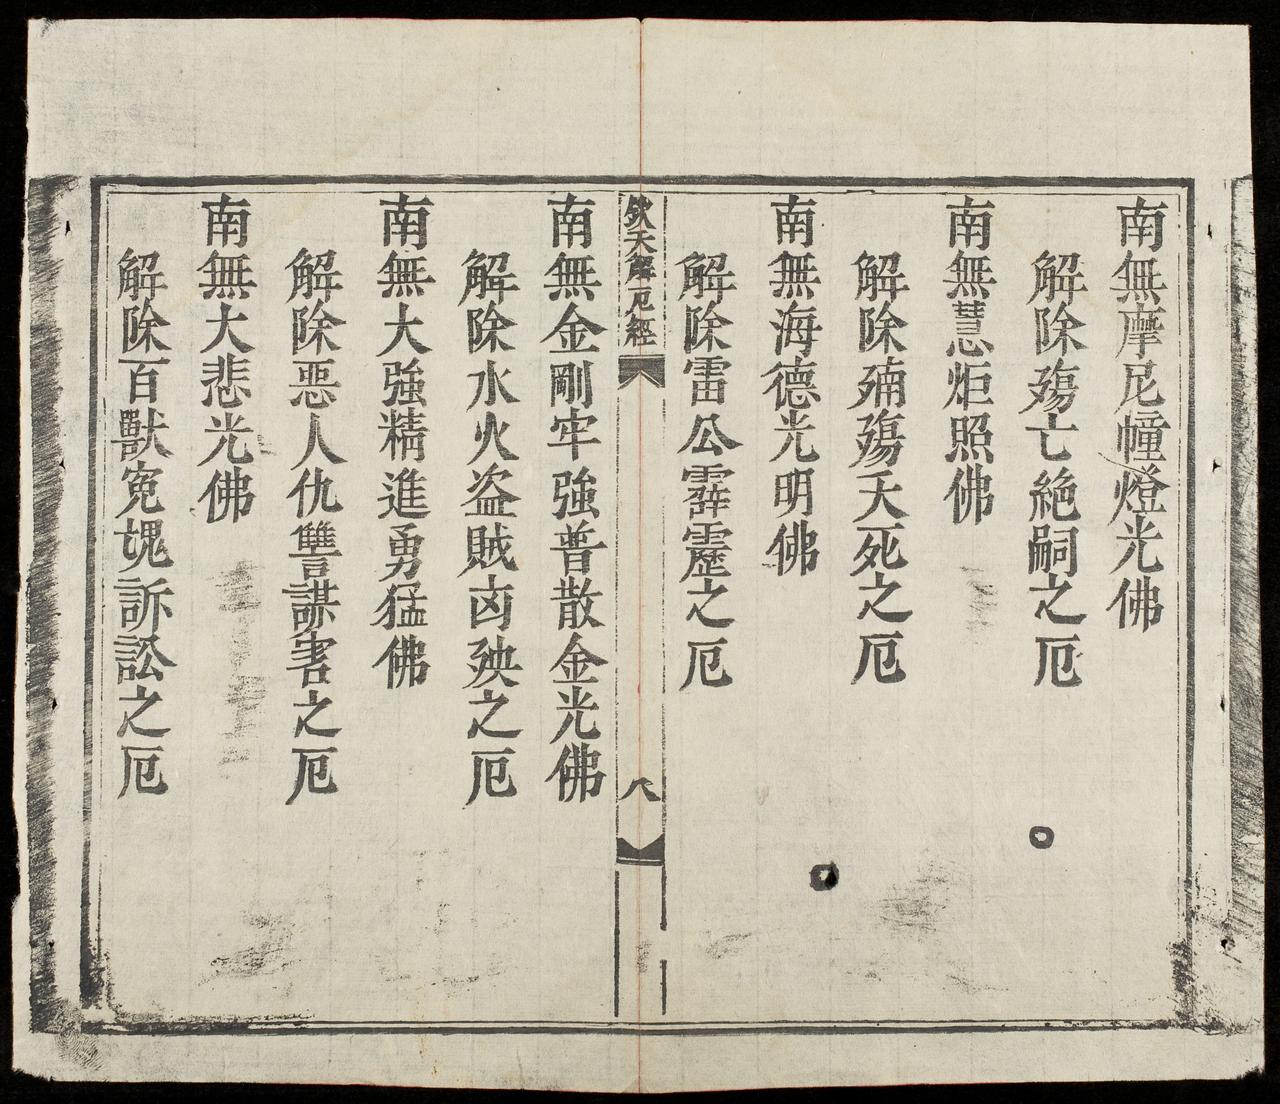 南無摩尼幢燈光佛
解除殤亡絶嗣之厄
南無慧炬照佛
解除殤夭死之厄
南無海德光明佛
解除雷公霹靂之厄
欽天解厄經
八
南無金剛牢強普散金光佛
解除水火盗賊凶殃之厄
南無大強精進勇猛佛
解除惡人仇讐謀害之厄
南無大悲光佛
解除百獸寃媿訴訟之厄